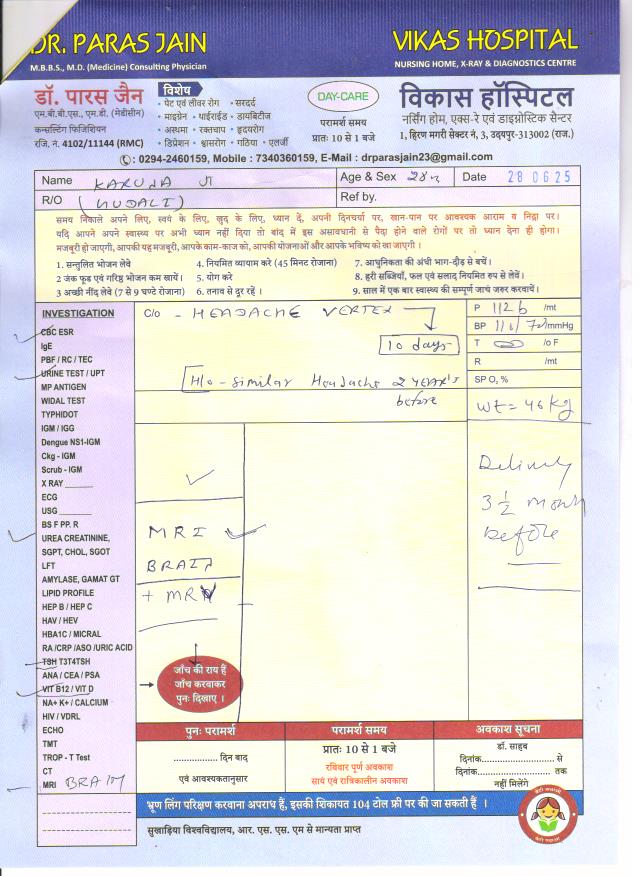 DR. PARAS JAIN
M.B.B.S., M.D. (Medicine) Consulting Physician
VIKAS HOSPITAL
NURSING HOME, X-RAY & DIAGNOSTICS CENTRE
डॉ. पारस जैन
एम.बी.बी.एस., एम.डी. (मेडीसीन)
कन्सल्टिंग फिजिशियन
रजि. नं. 4102/11144 (RMC)
विशेष
• पेट एवं लीवर रोग • सरदर्द
• माइग्रेन • थाईराईड • डायबिटीज
• अस्थमा • रक्तचाप • हृदयरोग
• डिप्रेशन • श्वासरोग • गठिया • एलर्जी
DAY-CARE
परामर्श समय
प्रातः 10 से 1 बजे
विकास हॉस्पिटल
नर्सिंग होम, एक्स-रे एवं डाइग्नोस्टिक सेन्टर
1, हिरण मगरी सेक्टर नं, 3, उदयपुर-313002 (राज.)
: 0294-2460159, Mobile : 7340360159, E-Mail : drparasjain23@gmail.com
Name KARUNA JI
Age & Sex 28
Date 28 06 25
R/O
Ref by.
समय निकाले अपने लिए, स्वयं के लिए, खुद के लिए, ध्यान दें, अपनी दिनचर्या पर, खान-पान पर आवश्यक आराम व निद्रा पर।
यदि आपने अपने स्वास्थ्य पर अभी ध्यान नहीं दिया तो बांद में इस असावधानी से पैदा होने वाले रोगों पर तो ध्यान देना ही होगा।
मजबूरी हो जाएगी, आपकी यह मजबूरी, आपके काम-काज को, आपकी योजनाओं और आपके भविष्य को खा जाएगी।
1. सन्तुलित भोजन लेवे
4. नियमित व्यायाम करे (45 मिनट रोजाना)
7. आधुनिकता की अंधी भाग-दौड़ से बचें।
2 जंक फूड एवं गरिष्ठ भोजन कम खायें।
5. योग करे
8. हरी सब्जियाँ, फल एवं सलाद नियमित रुप से लेवें।
3 अच्छी नींद लेवे (7 से 9 घण्टे रोजाना)
6. तनाव से दूर रहें ।
9. साल में एक बार स्वास्थ्य की सम्पूर्ण जाचं जरुर करवायें।
INVESTIGATION
CBC ESR
IgE
PBF / RC / TEC
URINE TEST / UPT
MP ANTIGEN
WIDAL TEST
TYPHIDOT
IGM / IGG
Dengue NS1-IGM
Ckg - IGM
Scrub - IGM
X RAY
ECG
USG
BS F PP. R
UREA CREATININE,
SGPT, CHOL, SGOT
LFT
AMYLASE, GAMAT GT
LIPID PROFILE
HEP B / HEP C
HAV / HEV
HBA1C / MICRAL
RA /CRP /ASO /URIC ACID
TSH T3T4TSH
ANA / CEA / PSA
VIT B12 / VIT D
NA+ K+ / CALCIUM
HIV / VDRL
ECHO
TMT
TROP - T Test
CT
MRI BRAIN
C/o - HEADACHE VERTEX
10 days
H/o - Similar Headache 2 YEAR'S
before
P /mt
BP mmHg
T /o F
R /mt
SP O, %
wt = 46 kg
Delivery
3 1/2 month
before
MRI
BRAIN
जाँच की राय हैं
जाँच करवाकर
पुनः दिखाए ।
पुनः परामर्श
................ दिन बाद
एवं आवश्यकतानुसार
परामर्श समय
प्रातः 10 से 1 बजे
रविवार पूर्ण अवकाश
सायं एवं रात्रिकालीन अवकाश
अवकाश सूचना
डॉ. साहब
दिनांक.................... से
दिनांक.................... तक
नहीं मिलेंगे
भ्रूण लिंग परिक्षण करवाना अपराध हैं, इसकी शिकायत 104 टोल फ्री पर की जा सकती हैं ।
सुखाड़िया विश्वविद्यालय, आर. एस. एस. एम से मान्यता प्राप्त